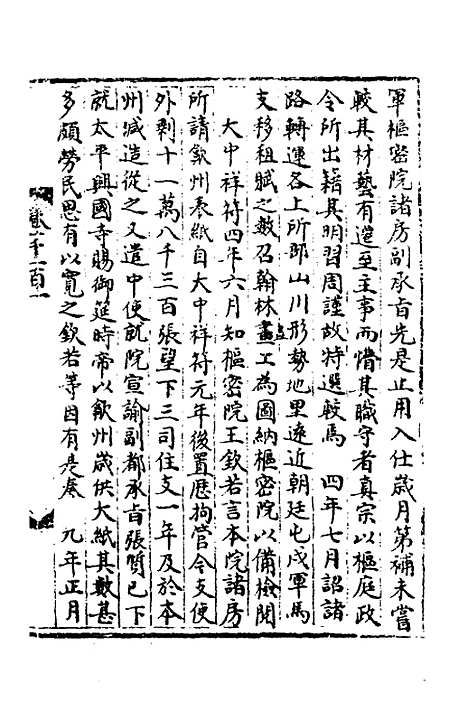 軍樞密院諸房副承旨先是止用入仕歲月第補未嘗
較其材藝有遷至主事而惜其職守者真宗以樞庭政
令所出籍其明習周謹故特選較焉　四年七月詔諸
路轉運各上所部山川形勢地里遠近朝廷屯戍軍馬
支移租賦之數召翰林畫工為圖納樞密院以備檢閱
大中祥符四年六月知樞密院王欽若言本院諸房
所請歙州表紙自大中祥符元年後置歷拘管令支使
外剩十一萬八千三百張望下三司住支一年及於本
州減造從之又遣中使就院宣諭副都承旨張質已下
就太平興國寺賜御筵時帝以歙州歲供大紙其數甚
多頗勞民思有以寬之欽若等因有是奏　九年正月